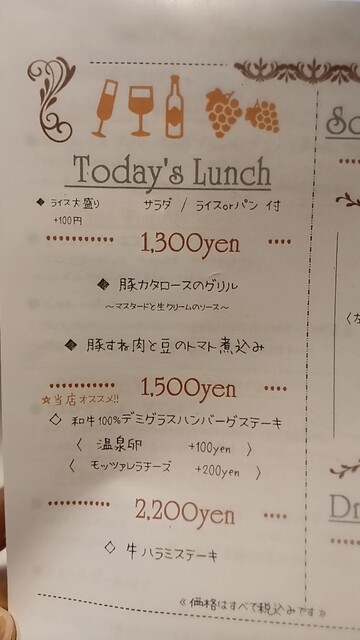 Today's Lunch
◆ ライス大盛り +100円
サラダ / ライスorパン 付
1,300yen
◆ 豚カタロースのグリル
~マスタードと生クリームのソース~
◆ 豚すね肉と豆のトマト煮込み
1,500yen
☆当店オススメ!!
◇ 和牛100%デミグラスハンバーグステーキ
〈 温泉卵 +100yen 〉
〈 モッツァレラチーズ +200yen 〉
2,200yen
◇ 牛ハラミステーキ
≪価格はすべて税込みです≫
So
Dr